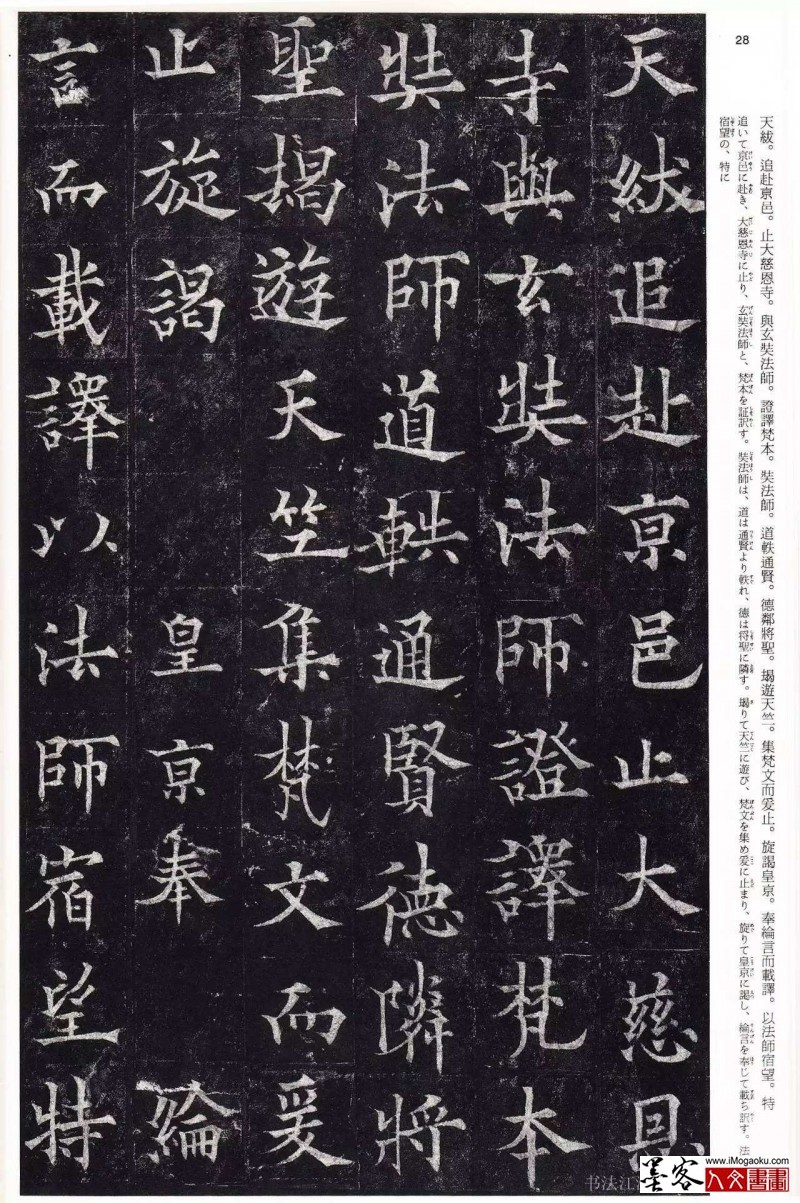 28
天紱。追赴亰邑。止大慈恩寺。與玄奘法師。證譯梵本。奘法師。道軼通賢。德鄰將聖。朅遊天竺。集梵文而爰止。旋謁皇京。奉綸言而載譯。以法師宿望。特
追いて京邑に赴き、大慈恩寺に止り、玄奘法師と、梵本を証訳す。奘法師は、道は通賢より軼れ、德は将聖に隣す。朅りて天竺に遊び、梵文を集め爰に止まり、旋りて皇京に謁し、綸言を奉じて載ち訳す。法
宿望の、特に
天紱追赴亰邑止大慈恩
寺與玄奘法師證譯梵本
奘法師道軼通賢德隣將
聖朅遊天竺集梵文而爰
止旋謁皇亰奉綸
言而載譯以法師宿望特
书法江
www.iMogaoku.com
墨客人文書畫